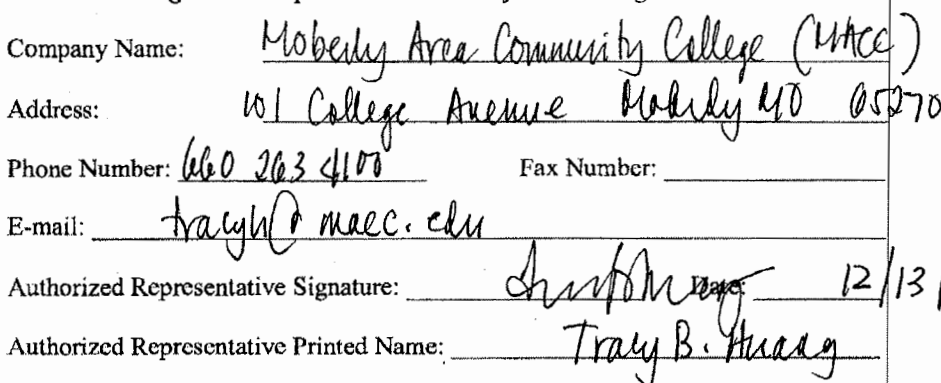 Company Name: Moberly Area Community College (MACC)
Address: 101 College Avenue Moberly MO 65270
Phone Number: 660 263 4100 Fax Number:
E-mail: tracyh@macc.edu
Authorized Representative Signature: Date: 12/13/
Authorized Representative Printed Name: Tracy B. Huang